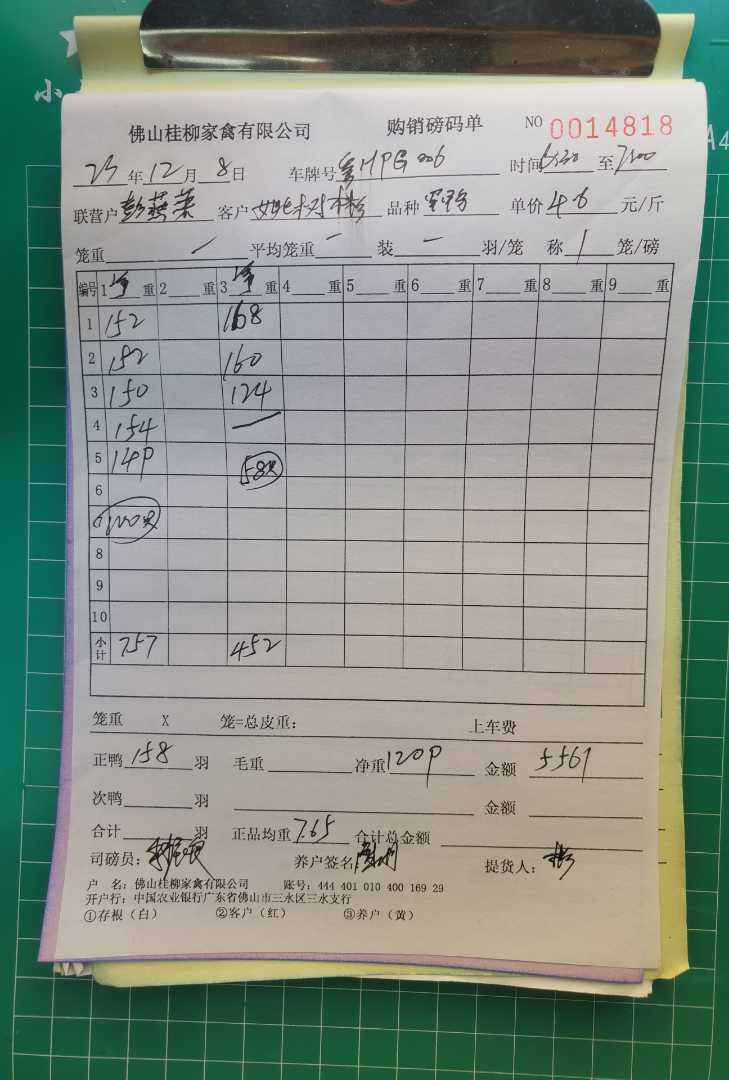 小
A4
佛山桂柳家禽有限公司 购销磅码单 NO 0014818
23年12月8日 车牌号 HPG006 时间6:30至7:00
联营户彭燕莱 客户 品种 单价4.6元/斤
笼重 一 平均笼重 一 装 一 羽/笼 称 1 笼/磅
编号 1净重 2 重 3净重 4 重 5 重 6 重 7 重 8 重 9 重
1 152 168
2 152 160
3 150 124
4 154 一
5 149 58只
6
7 100只
8
9
10
小计 757 452
笼重 X 笼=总皮重: 上车费
正鸭158羽 毛重 净重1209 金额 5561
次鸭 羽 金额
合计 羽 正品均重7.65 合计总金额
司磅员: 养户签名 提货人:
户 名: 佛山桂柳家禽有限公司 账号: 444 401 010 400 169 29
开户行: 中国农业银行广东省佛山市三水区三水支行
①存根（白） ②客户（红） ③养户（黄）